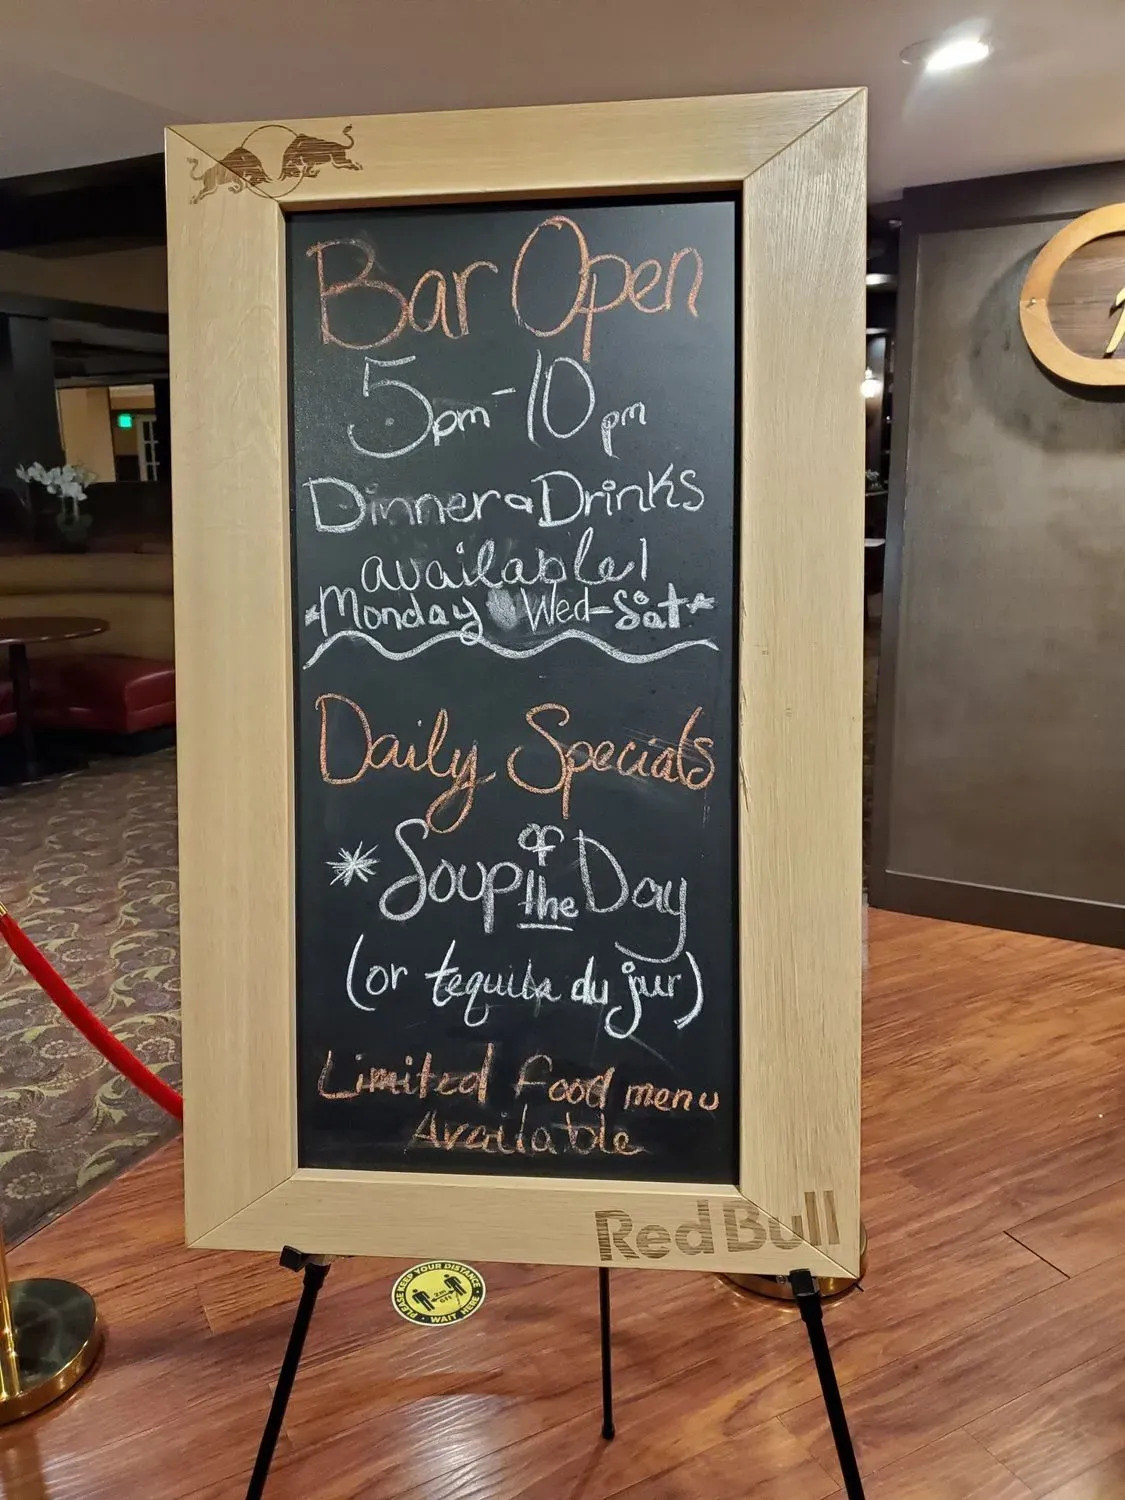 Bar Open
5pm - 10pm
Dinner & Drinks
available!
*Monday Wed-Sat*
Daily Specials
* Soup of the Day
(or tequila du jur)
Limited food menu
Available
Red Bull
PLEASE KEEP YOUR DISTANCE
2m
6FT
WAIT HERE